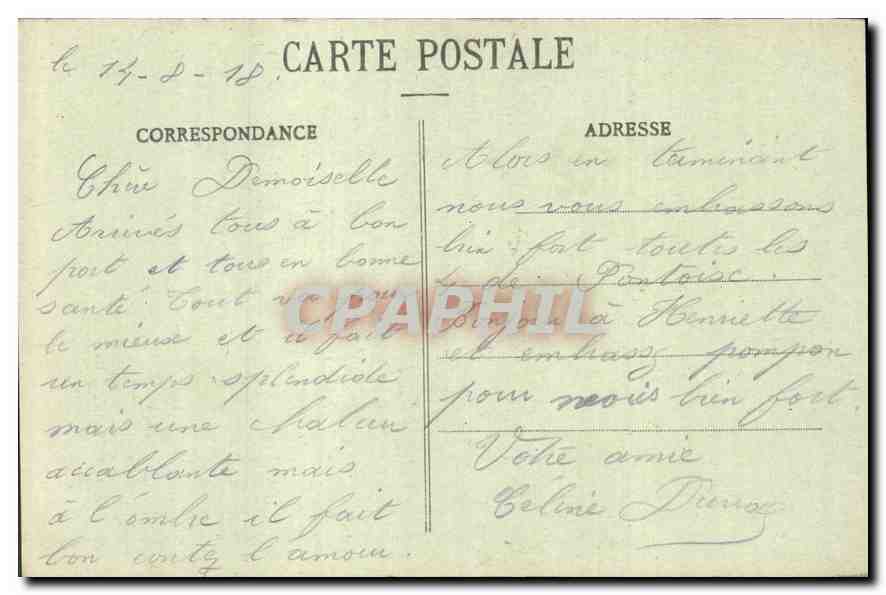 le 14-8-18.
CARTE POSTALE
CORRESPONDANCE
Chère Demoiselle
Arrivés tous à bon
port et tous en bonne
santé. Tout va pour
le mieux et il fait
un temps splendide
mais une chaleur
accablante mais
à l'ombre il fait
bon contez l'amour.
ADRESSE
Alors en terminant
nous vous embrassons
bien fort toutes les
4 de Pontoise.
Bonjour à Henriette
et embrassez pompon
pour nous bien fort.
Votre amie
Céline
CPAPHIL